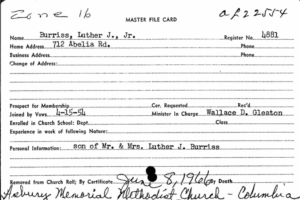 Zone 16 af 22554
MASTER FILE CARD
Name Burriss, Luther J., Jr. Register No. 4881
Home Address 712 Abelia Rd. Phone
Business Address Phone
Change of Address:
Prospect for Membership Cor. Requested Rec'd
Joined by Vows 4-15-54 Minister in Charge Wallace D. Gleaton
Enrolled in Church School: Dept. Class
Experience in work of following Nature:
Personal Information: son of Mr. & Mrs. Luther J. Burriss
Removed from Church Roll: By Certificate June 8, 1966 By Death
Asbury Memorial Methodist Church - Columbia